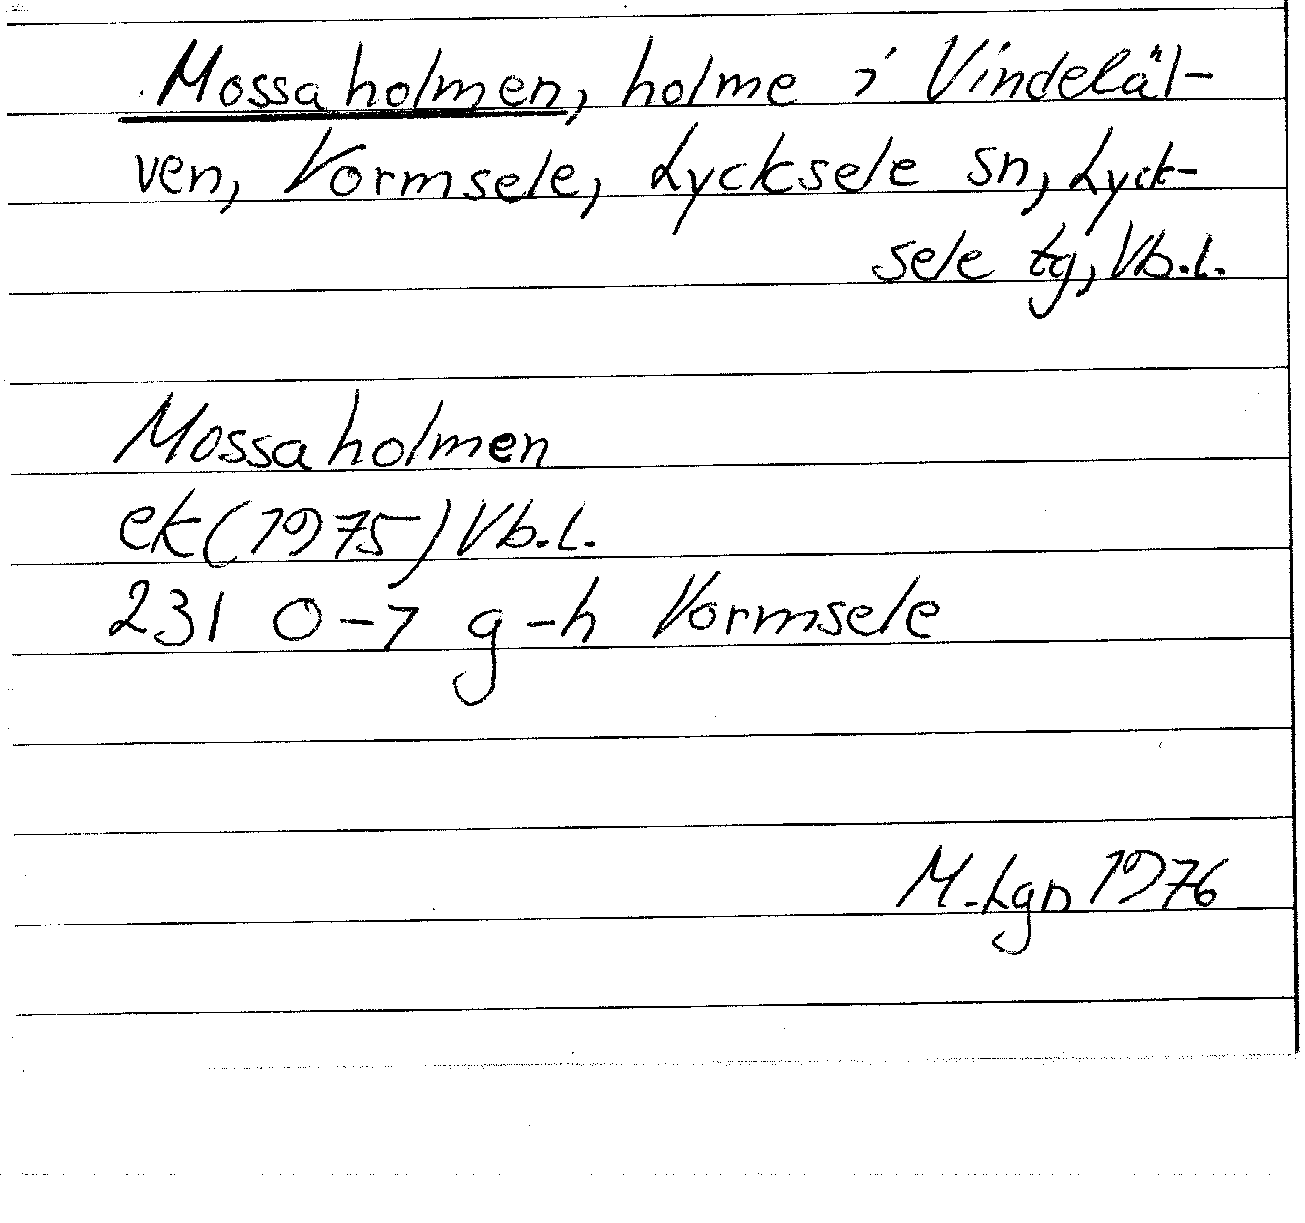 Mossaholmen, holme i Vindeläl-
ven, Vormsele, Lycksele sn, Lyck-
sele tg, Vb.l.
Mossaholmen
ek (1975) Vb.l.
23I 0-7 g-h Vormsele
M. Lgn 1976